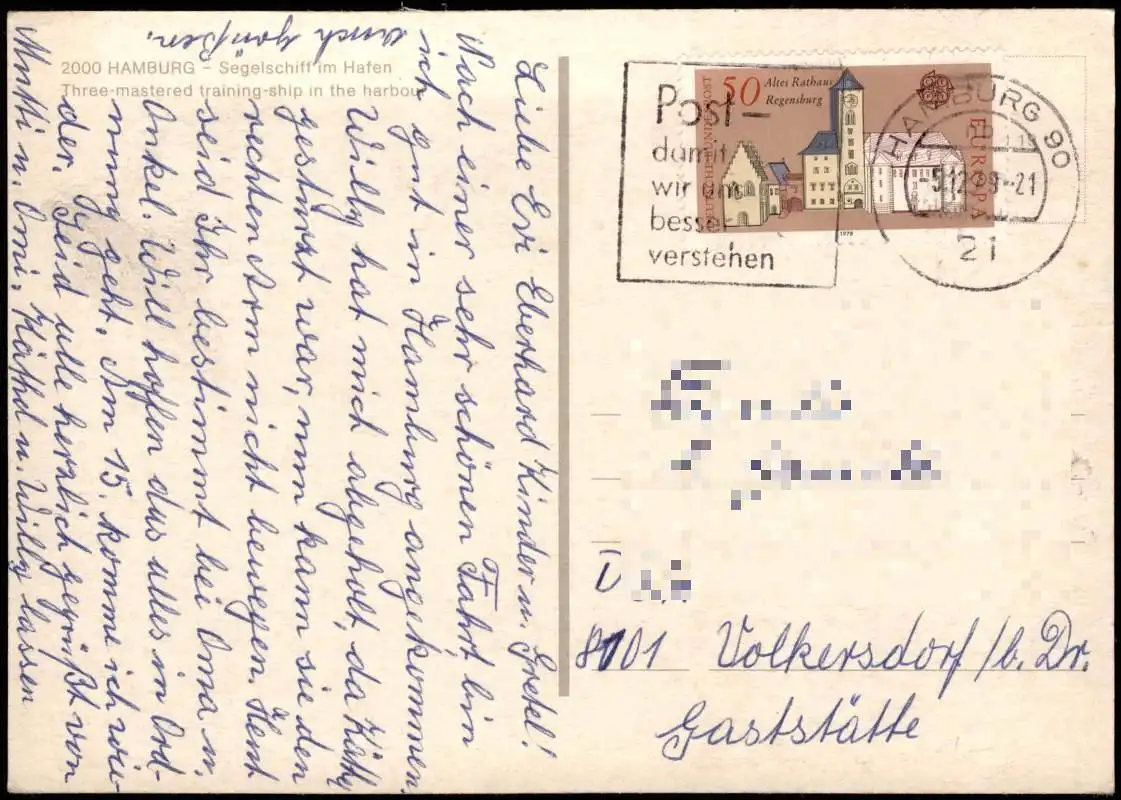 2000 HAMBURG – Segelschiff im Hafen
Three-mastered training-ship in the harbour
Liebe Evi Eberhard Kinder u. Gretel!
Nach einer sehr schönen Fahrt, bin
ich gut in Hamburg angekommen.
Willy hat mich abgeholt, da Käthy
gestürzt war, nun kann sie den
rechten Arm nicht bewegen. Heut
seid Ihr bestimmt bei Oma u.
Onkel. Will hoffen das alles in Ord-
nung geht. Am 15. komme ich wie-
der. Seid alle herzlich gegrüßt von
Mutti u. Omi. Käthy u. Willy lassen
Euch grüßen.
Post –
damit
wir uns
besser
verstehen
50 Altes Rathaus
Regensburg
DEUTSCHE BUNDESPOST
EUROPA
1978
HAMBURG 90
-21
21
8101 Volkersdorf /b. Dr.
Gaststätte